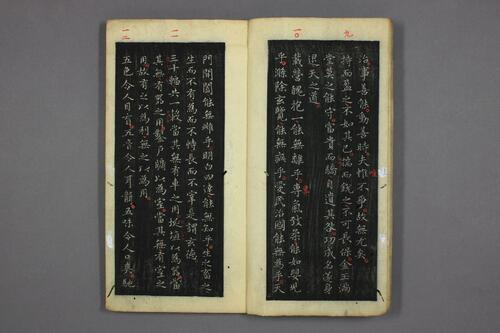 九
治事善能動善時夫不爭故無尤矣
惟
持而盈之不如其已揣而銳之不可長保金玉滿
堂莫之能守富貴而驕自遺其咎功成名遂身
退天之道
一〇
載營魄抱一能無離乎專氣致柔能如嬰兒
乎滌除玄覽能無疵乎愛民治國能無為乎天
門開闔能無雌乎明白四達能無知乎生之畜之
生而不有為而不恃長而不宰是謂玄德
一一
三十輻共一轂當其無有車之用埏埴以為器當
其無有器之用鑿戶牖以為室當其無有室之
用故有之以為利無之以為用
一二
五色令人目盲五音令人耳聾五味令人口爽馳